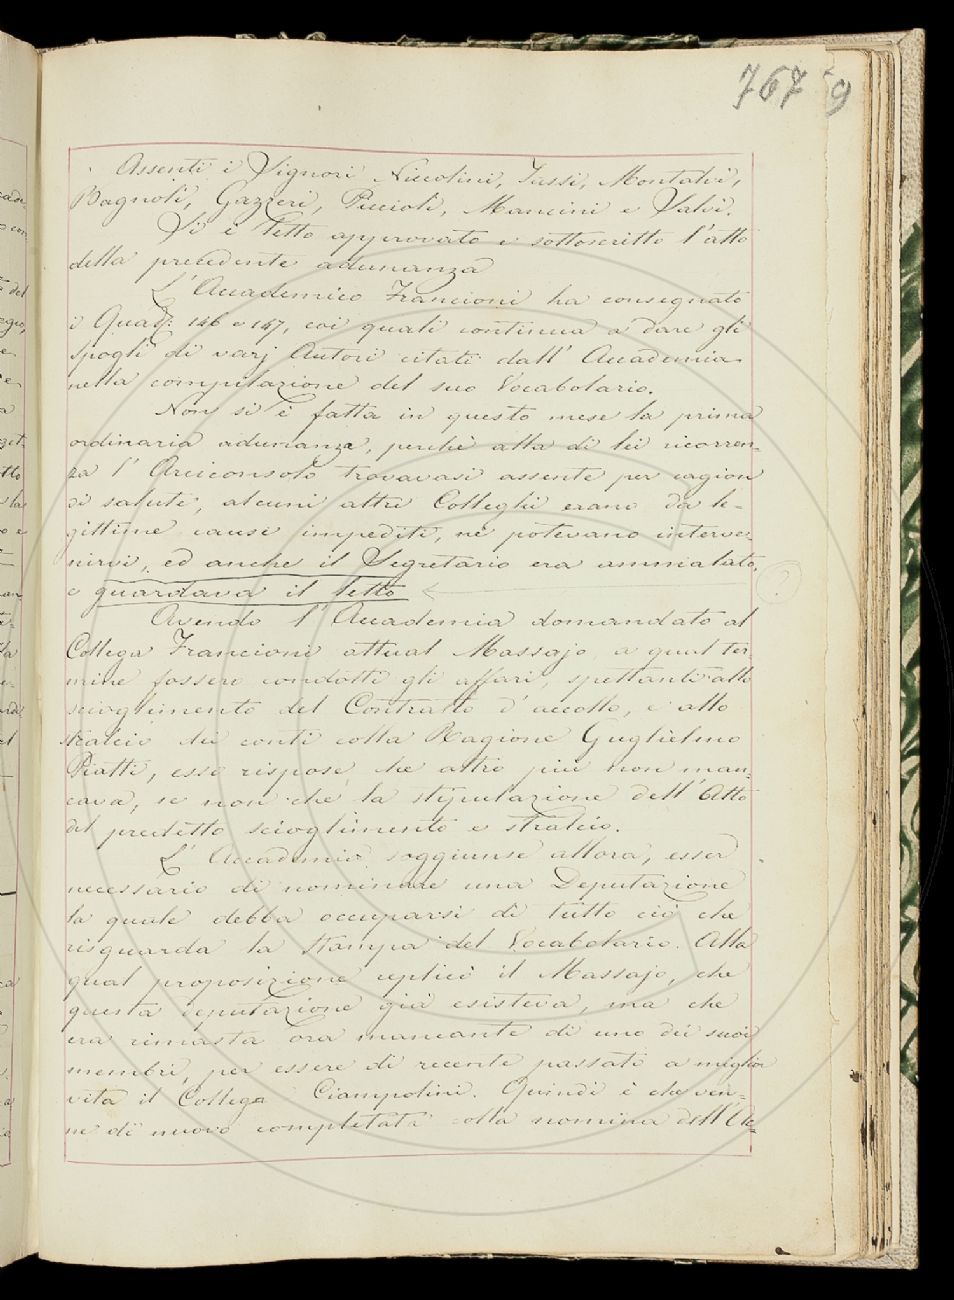 767 9
Assenti i Signori Niccolini, Tassi, Montalvi,
Bagnoli, Gazzeri, Piccioli, Mancini e Salvi.
Si è letto approvato e sottoscritto l'atto
della precedente adunanza
L'Accademico Francioni ha consegnato
i Quad: 146 e 147, coi quali continua a dare gli
spogli di varj Autori citati dall'Accademia
nella compilazione del suo Vocabolario.
Non si è fatta in questo mese la prima
ordinaria adunanza, perchè alla di lei ricorren-
za l'Arciconsolo trovavasi assente per cagion
di salute, alcuni altri Colleghi erano da le-
gittime cause impediti, nè potevano interve-
nirvi, ed anche il Segretario era ammalato,
e guardava il letto
Avendo l'Accademia domandato al
Collega Francioni attual Massajo, a qual ter
mine fossero condotti gli affari, spettanti allo
scioglimento del Contratto d'accollo, e allo
stralcio dei conti colla Ragione Guglielmo
Piatti, esso rispose, che altro più non man-
cava, se non che la stipulazione dell'Atto
del predetto scioglimento e stralcio.
L'Accademia soggiunse allora, esser
necessario di nominare una Deputazione
la quale debba occuparsi di tutto ciò che
risguarda la stampa del Vocabolario. Alla
qual proposizione replicò il Massajo, che
questa deputazione già esisteva, ma che
era rimasta ora mancante di uno dei suoi
membri, per essere di recente passato a miglior
vita il Collega Ciampolini. Quindi è che ven-
ne di nuovo completata colla nomina dell'Ac-